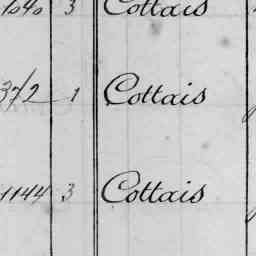 1040 3 Cottais
372 1 Cottais
1144 3 Cottais